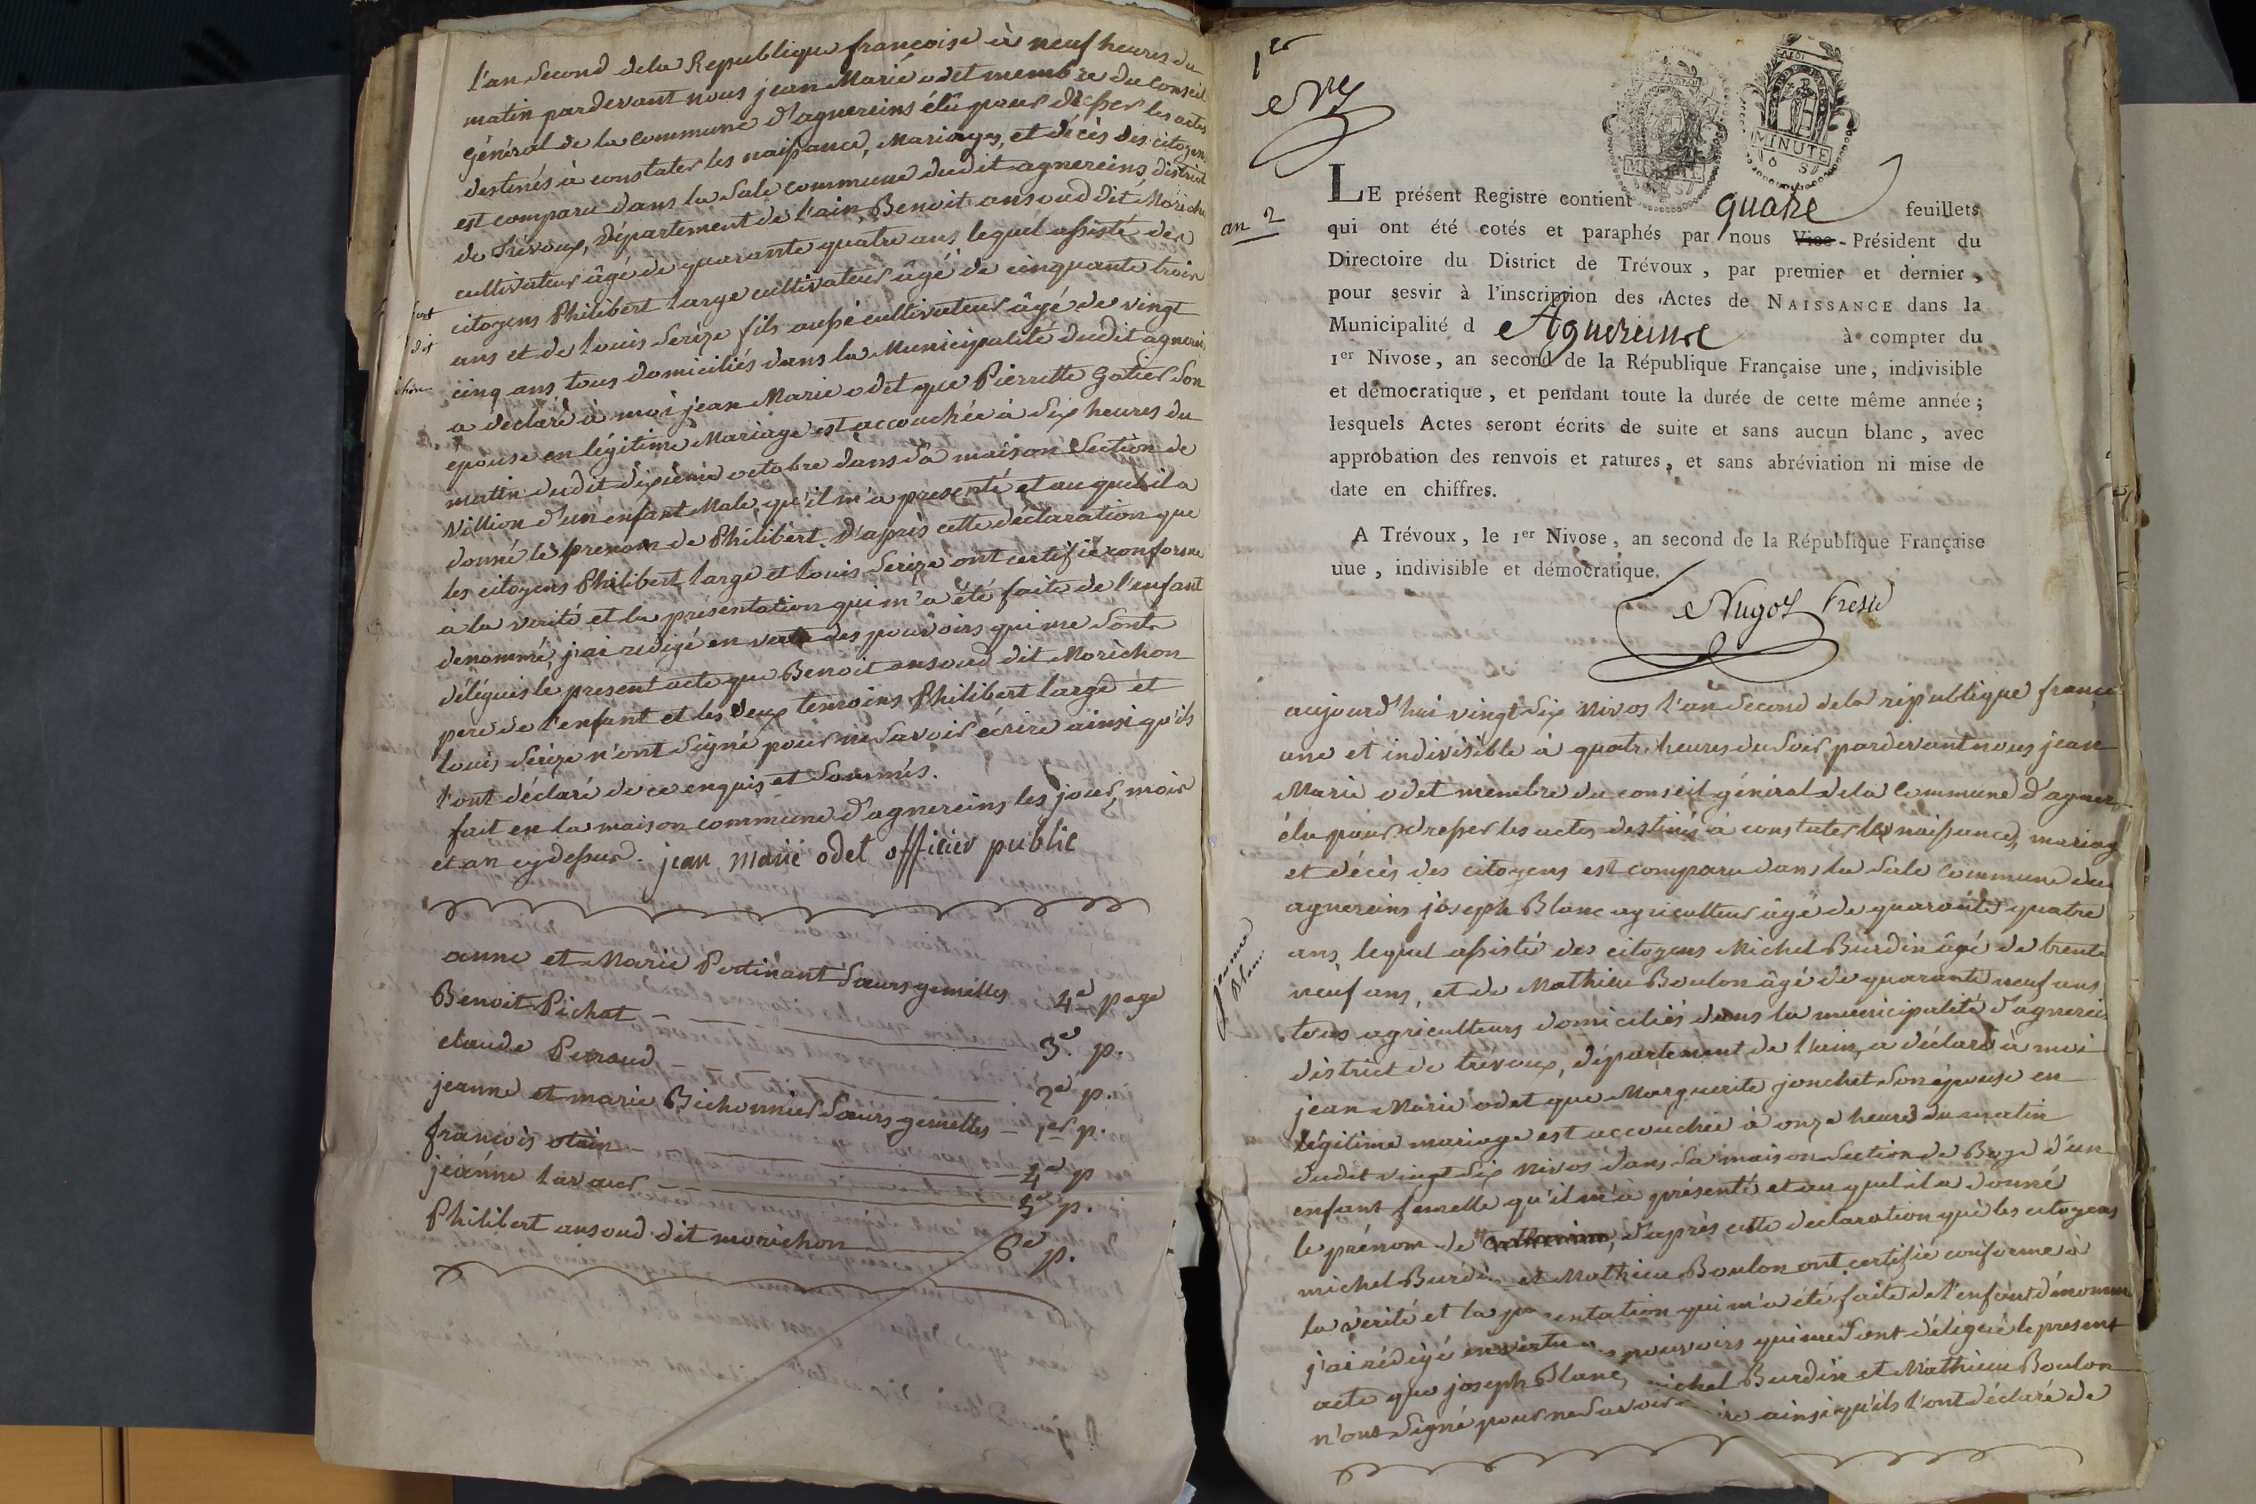 l'an second de la Republique françoise à neuf heures du
matin pardevant nous jean Marie odet membre du Conseil
général de la Commune d'agnereins élû pour dresser les actes
destinés à constater les naissance, Mariages, et décès des citoyens
est comparu dans la Sale commune dudit agnereins, district
de Trévoux, département de l'ain, Benoit ansoud dit Morichon
cultivateur âgé de quarante quatre ans, lequel assisté des
citoyens Philibert large cultivateur âgé de cinquante trois
ans et de Louis Serize fils aussi cultivateur âgé de vingt
cinq ans, tous domiciliés dans la Municipalité dudit agnereins
a déclaré à moi jean Marie odet que Pierrette Gatier son
epouse en légitime Mariage est accouchée à Six heures du
matin dudit dixième octobre dans sa maison Section de
Villion d'un enfant Male, qu'il m'a presenté et auquel il a
donné le prenom de Philibert. D'après cette déclaration que
les citoyens Philibert large et Louis Serize ont certifié conforme
à la verité et la présentation qui m'a été faite de l'enfant
denommé, j'ai redigé en vertu des pouvoirs qui me Sont
délégués le present acte que Benoit ansoud dit Morichon
pere de l'enfant et les deux temoins Philibert large et
Louis Serize n'ont Signé pour ne Savoir écrire ainsi qu'ils
l'ont déclaré de ce enquis et Sommés.
fait en la maison commune d'agnereins les jour, mois
et an cy dessus. jean marie odet officier public
anne et Marie Pertinant Sœurs gemelles 4e page
Benoit Pichat 3e p.
claude Perraud 2e p.
jeanne et marie Bichonnier Sœurs gemelles 1er p.
françois otain 4e p
jeanne lavaur 5e p.
Philibert ansoud dit morichon 6e p.
1er
an 2
MINUTE
LE présent Registre contient quatre feuillets
qui ont été cotés et paraphés par nous Vice-Président du
Directoire du District de Trévoux, par premier et dernier,
pour sesvir à l'inscription des Actes de NAISSANCE dans la
Municipalité d Agnereins à compter du
1er Nivose, an second de la République Française une, indivisible
et démocratique, et pendant toute la durée de cette même année;
lesquels Actes seront écrits de suite et sans aucun blanc, avec
approbation des renvois et ratures, et sans abréviation ni mise de
date en chiffres.
A Trévoux, le 1er Nivose, an second de la République Française
uue, indivisible et démocratique.
jeanne
Blanc
aujourd'hui vingt Six Nivos l'an Second de la république franç
une et indivisible à quatre heures du Soir pardevant nous jean
Marie odet membre du conseil général de la Commune d'agner
élu pour dresser les actes destinés à constater les naissances, mariag
et décès des citoyens est comparu dans la Sale Commune du
agnereins joseph Blanc agriculteur âgé de quarante quatre
ans, lequel assisté des citoyens Michel Burdin âgé de trente
neuf ans, et de Mathieu Boulon âgé de quarante neuf ans
tous agriculteurs domiciliés dans la municipalité d'agnerei
district de trévoux, département de l'ain, a déclaré à moi
jean Marie odet que Marguerite jonchet Son épouse en
légitime mariage est accouchée à onze heures du matin
dudit vingt Six Nivos dans sa maison Section de Buye d'un
enfant femelle qu'il m'a présenté et auquel il a donné
le prénom de d'après cette declaration que les citoyens
michel Burdin et Mathieu Boulon ont certifié conforme à
la vérité et la pr entation qui m'a été faite de l'enfant dénomm
j'ai rédigé en vertu pouvoirs qui me Sont délégué le present
acte que joseph Blanc, michel Burdin et Mathieu Boulon
n'ont Signé pour ne Savoir ire ainsi qu'ils l'ont déclaré de